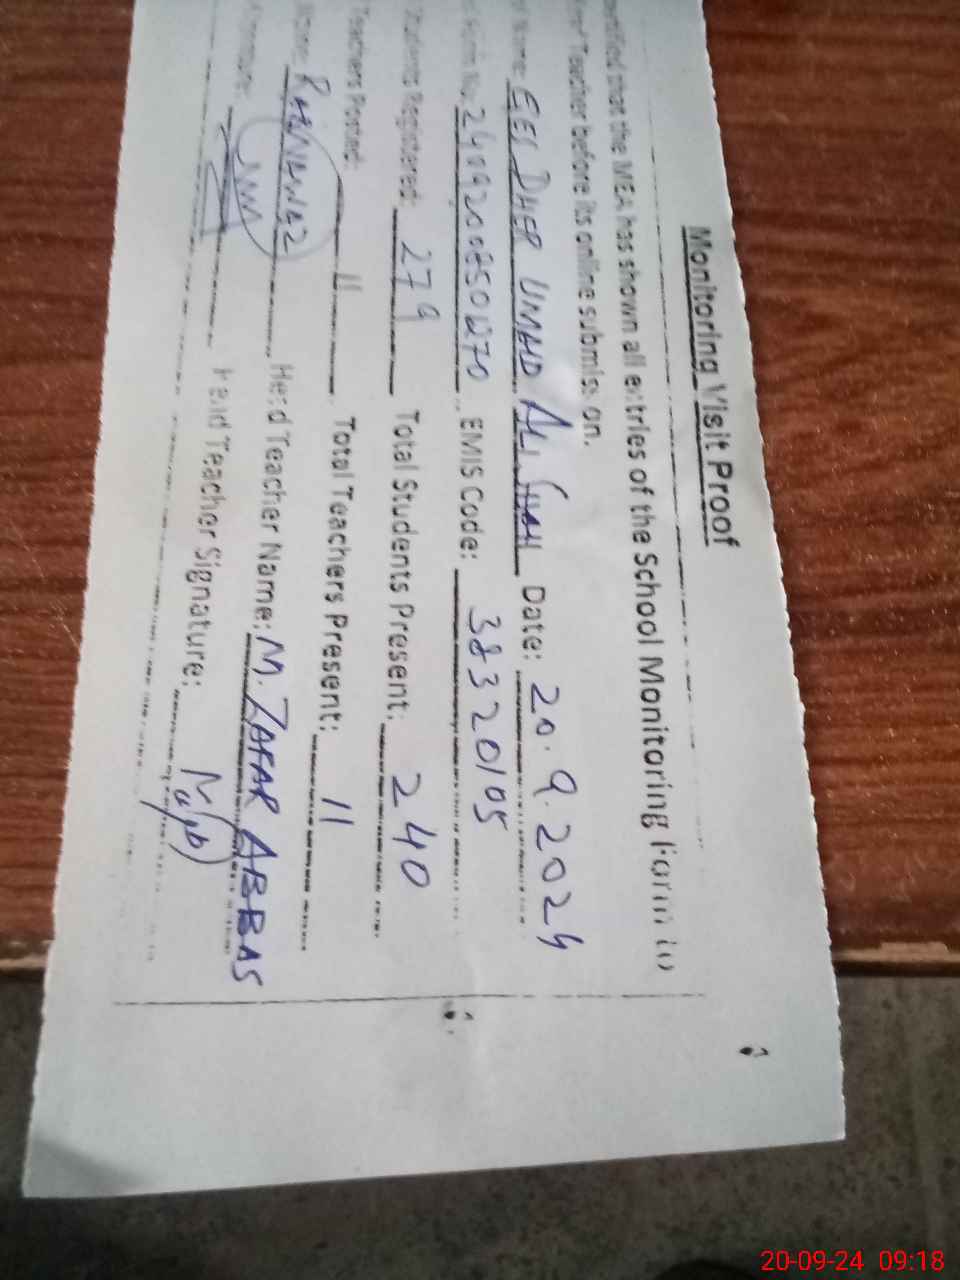 Monitoring Visit Proof
that the MEA has shown all entries of the School Monitoring Form to
Teacher before its online submission.
Name: GES DHER UMAID ALI SHAH Date: 20.9.2024
EMIS Code: 38320105
Students Registered: 279 Total Students Present: 240
Teachers Posted: 11 Total Teachers Present: 11
Name: RABNAWAZ Head Teacher Name: M. ZAFAR ABBAS
Head Teacher Signature:
20-09-24 09:18